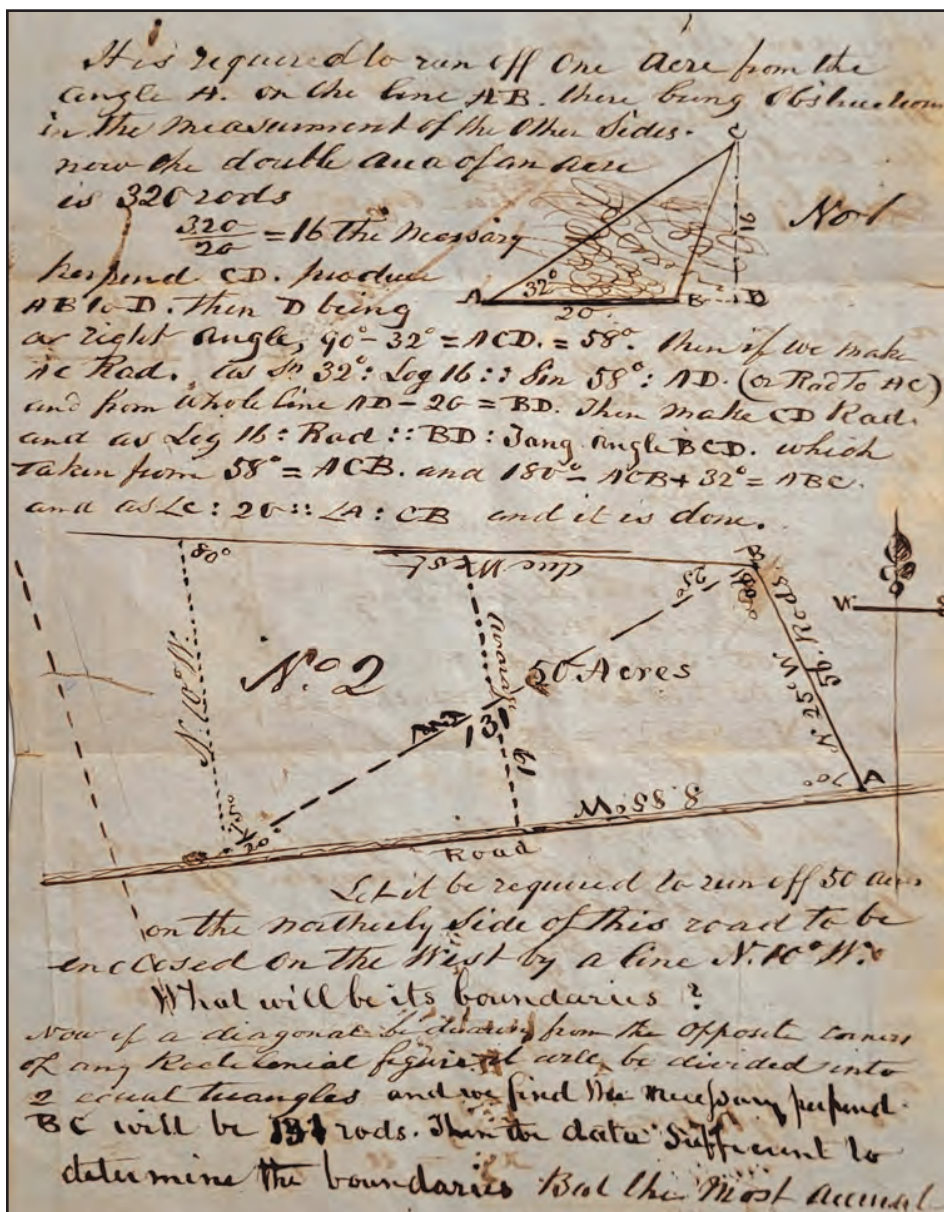 It is required to run off One Acre from the
angle A. on the line AB. there being Obstructions
in the Measurment of the Other Sides.
now the double area of an acre
is 320 rods
320/20 = 16 the Necessary
Perpend CD. produce
AB to D. then D being
a right angle, 90°-32° = ACD. = 58°. then if we make
AC Rad. as Sn 32° : Log 16 :: Sin 58° : AD. (or Rad To AC)
and from Whole line AD - 20 = BD. Then make CD Rad.
and as Log 16 : Rad :: BD : Tang. angle BCD. which
Taken from 58° = ACB. and 180° - ACB + 32° = ABC.
and as LC : 20 :: LA : CB and it is done.
C
16
No 1
A
32°
B
D
20
80°
due West
B
25°
W
N. 10° W.
No 2
Avarage
50 Acres
N 25° W
56. Rods
131
61
75°
20°
70°
A
S. 85° W
Road
Let it be required to run off 50 acres
on the northerly Side of this road to be
enclosed on the West by a line N. 10° W.
What will be its boundaries ?
Now if a diagonal be drawn from the Opposite corners
of any Rectilenial figure it will be divided into
2 equal triangles and we find the necessary perpend.
BC will be 131 rods. Then the data Sufficient to
determine the boundaries But the Most